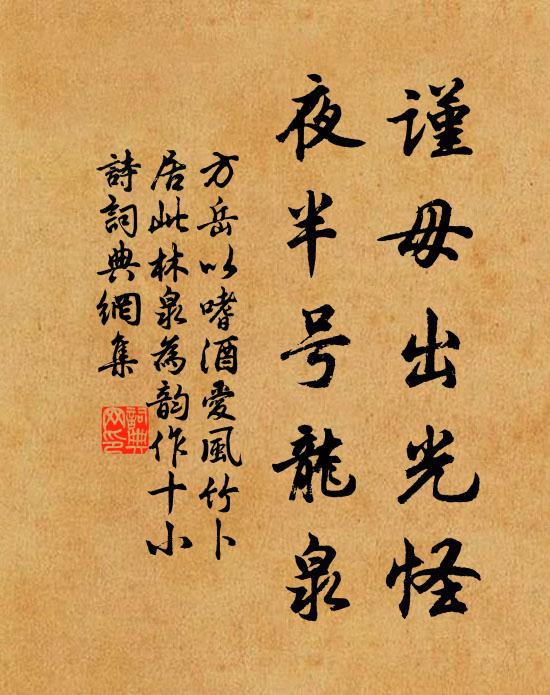 谨毋出光怪
夜半号龍泉
方岳以嗜酒愛風竹卜
居此林泉為韵作十小
詩詞典網集